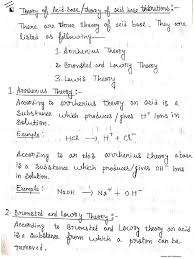 Theory of Acid-base/theory of acid base titrations:-
There are three theory of acid base. They are
listed as following—
1. Arrhenius Theory
2. Bronsted and Lowry Theory
3. Lewis Theory
1. Arrhenius Theory:-
According to arrhenius theory an acid is
a Substance which produces / gives H⁺ Ions in
Solution.
Example:-
HCl → H⁺ + Cl⁻
According to arrhenius theory a base
is a Substance which produces / gives OH⁻ Ions
in Solution.
Example:-
NaOH → Na⁺ + OH⁻
2. Bronsted and Lowry Theory:-
According to Bronsted and Lowry theory an acid
is a Substance from which a proton can be
removed.